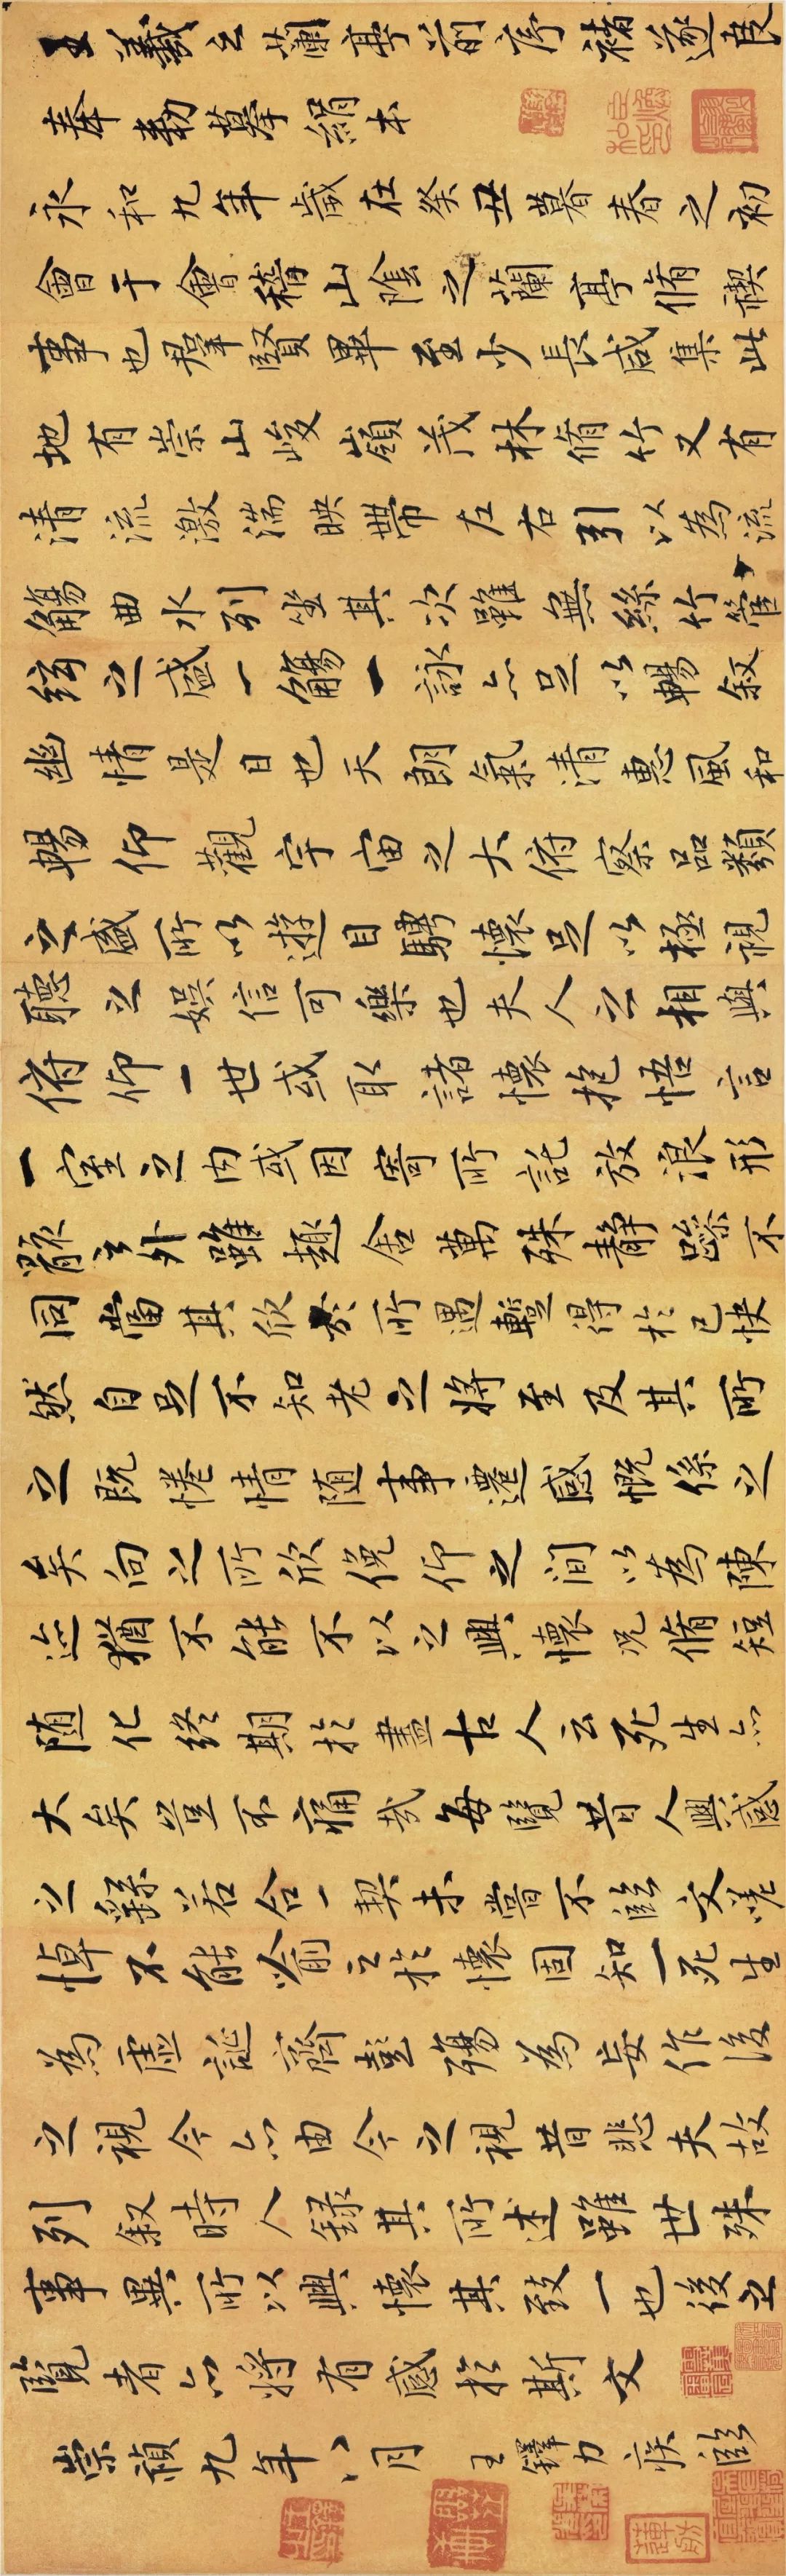 王羲之蘭亭前序褚遂良
奉勅摹絹本
永和九年歲在癸丑暮春之初
會于會稽山陰之蘭亭脩禊
事也羣賢畢至少長咸集此
地有崇山峻嶺茂林脩竹又有
清流激湍映帶左右引以為流
觴曲水列坐其次雖無絲竹管
絃之盛一觴一詠亦足以暢叙
幽情是日也天朗氣清惠風和
暢仰觀宇宙之大俯察品類
之盛所以遊目騁懷足以極視
聽之娛信可樂也夫人之相與
俯仰一世或取諸懷抱悟言
一室之内或因寄所託放浪形
骸之外雖趣舍萬殊靜躁不
同當其欣於所遇暫得於己快
然自足不知老之將至及其所
之既惓情随事遷感慨係之
矣向之所欣俛仰之間以為陳
迹猶不能不以之興懷况脩短
随化終期於盡古人云死生亦
大矣豈不痛哉每覽昔人興感
之繇若合一契未嘗不臨文嗟
悼不能喻之於懷固知一死生
為虛誕齊彭殤為妄作後
之視今亦由今之視昔悲夫故
列叙時人錄其所述雖世殊
事異所以興懷其致一也後之
覽者亦將有感於斯文
崇禎九年八月 王鐸力疾臨